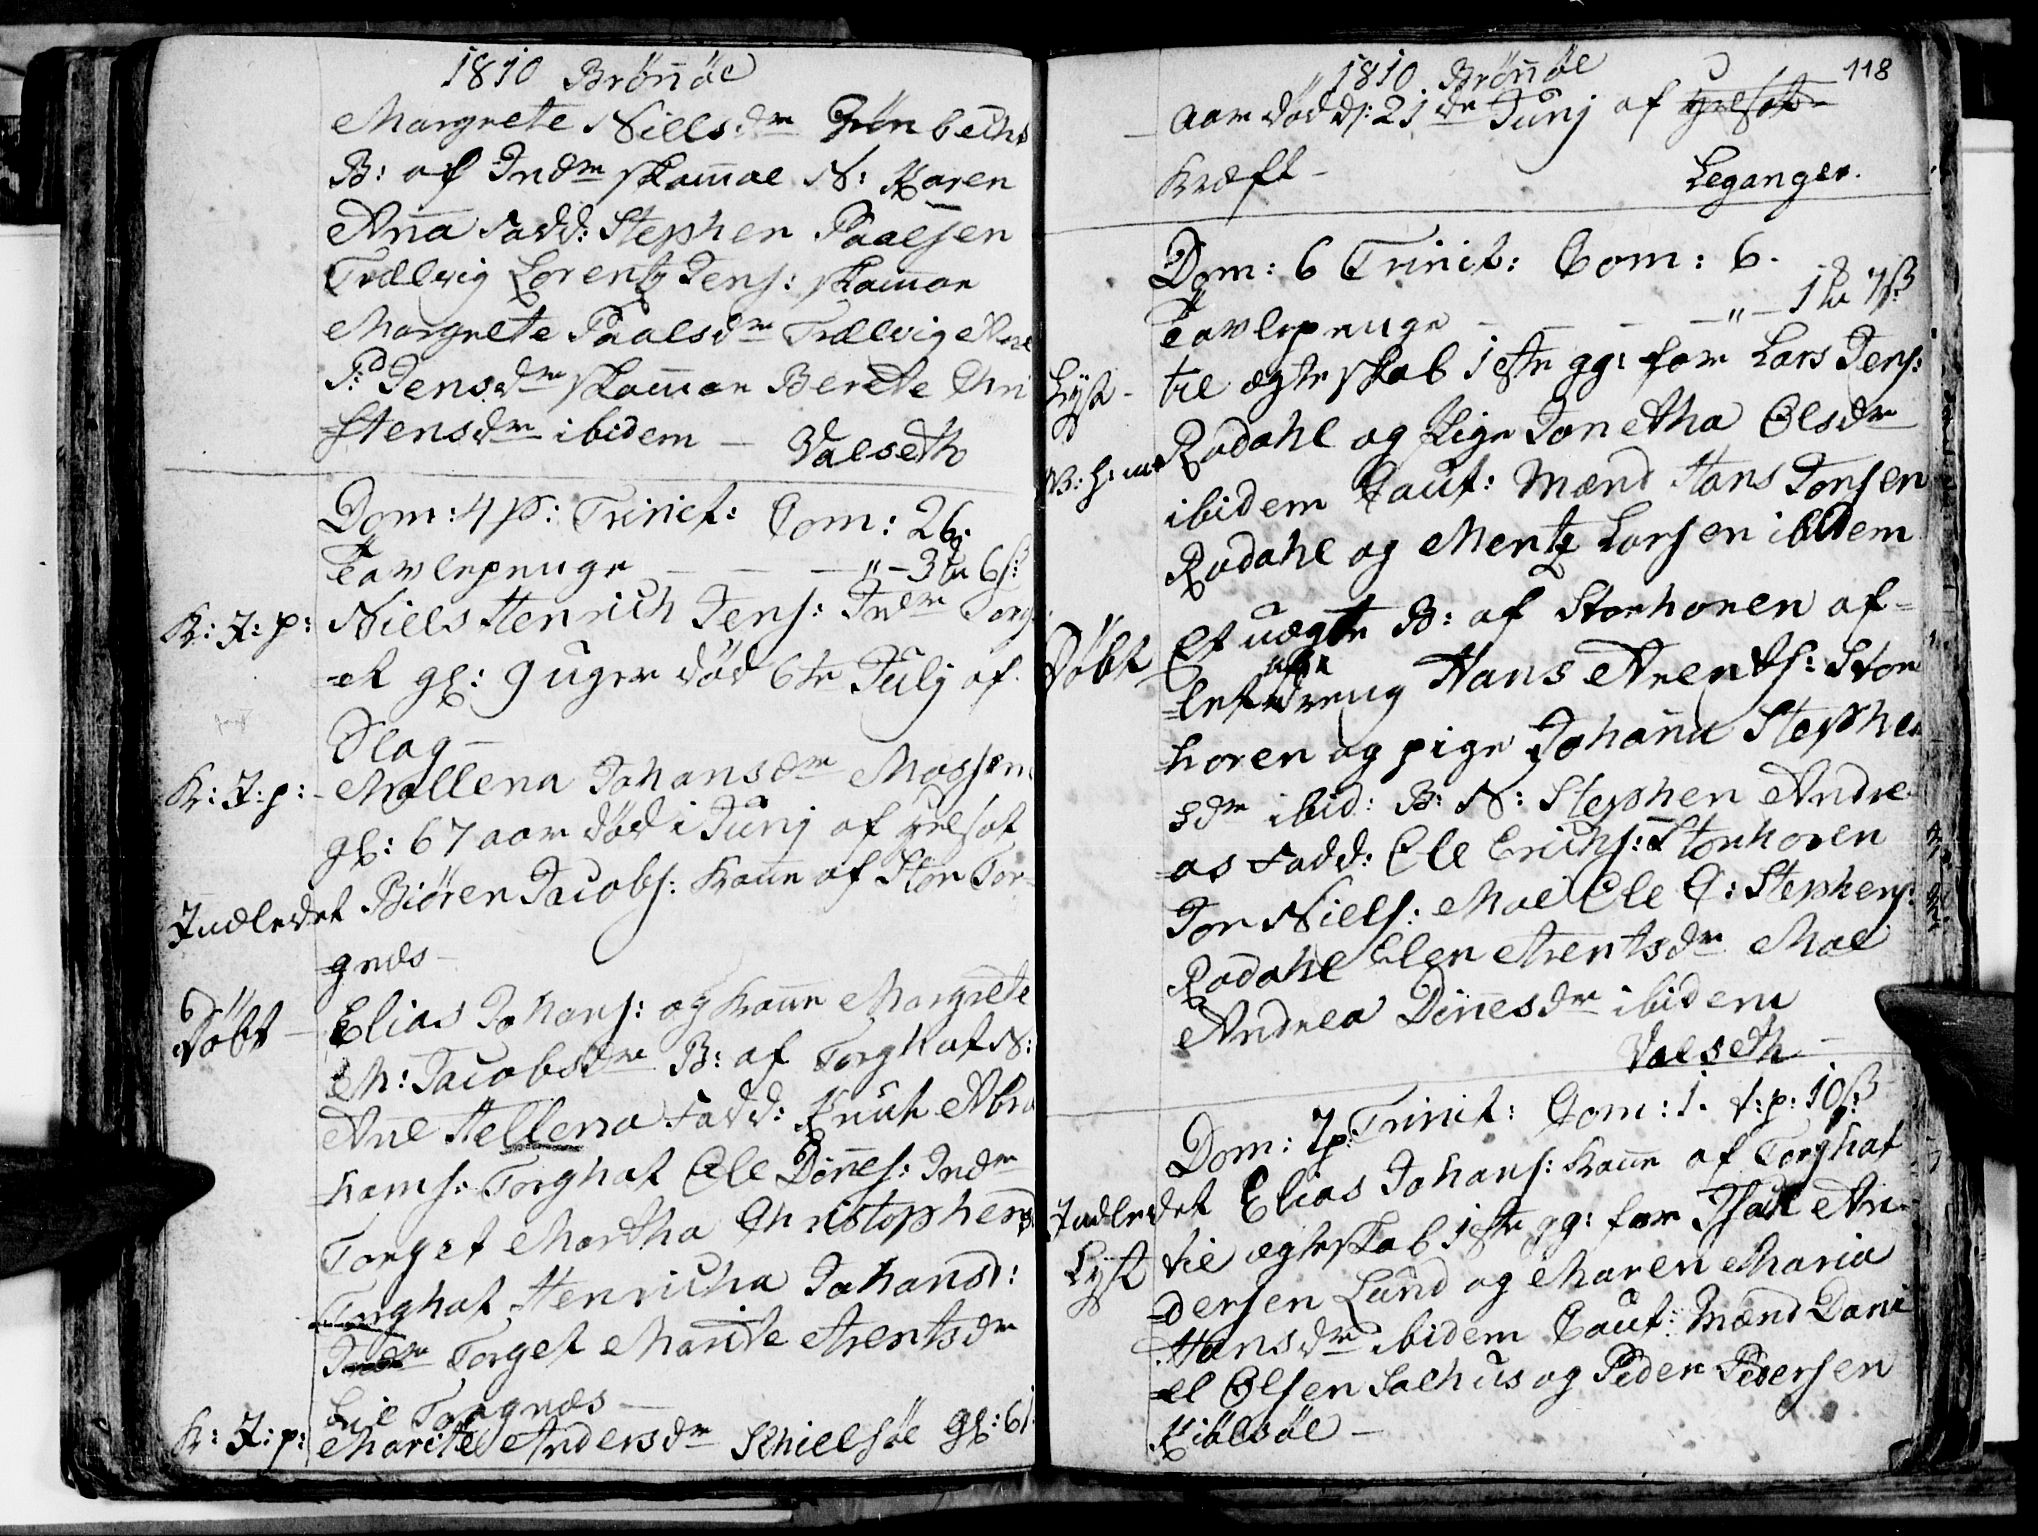 1810 Brönöe
Margrete Nielsdr Grönbechs
B: af Indr Skamoe N: Karen
Ana Fadd: Stephen Paalsen
Trælvig Lorentz Jens: Skamoe
Margrete Paalsdr Trælvig Ane
P:d Jensdr Skamoe Berete Chri
=stensdr ibidem — Valseth
Dom: 4 p: Trinit: Com: 26.
Tavlepenge — — — " - 3 6 s:
K: J: p: Niels Henrich Jens: Indr Torg
=et gl: 9 uger död 6te Julj af
Slag —
K: J: p: Mallena Johansdr Mosjen
gl: 67 aar död i Junj af
Indledet Biören Jacobs: Kone af Stor Tor=
=gnæs —
Döbt — Elias Johans: og Kone Margrete
M: Jacobsdr B: af Torghat N:
Ane Hellena Fadd: Knut Abra
=hams: Torghat Ole Dönes: Indr
Torget Martha Christophersd
Torghat Henricha Johansd:
Indr Torget Marite Arentsdr
Lil Torgnæs —
K: J: p: Marite Andersdr Schielsöe gl: 61
1810. Brönöe
118
aar död d: 21de Junj af
Kræft — Leganger.
Dom: 6 Trinit: Com: 6.
Tavlepenge — — — " — 1 7 ß
Lyst — til ægteskab 1ste gg: for Lars Jens:
Rodahl og Pige Jonetha Olsdr
ibidem Caut: Mænd Hans Jonsen
Rodahl og Mentz Larsen ibidem
Döbt Et uægte B: af Storhoren af=
=let Dreng Hans Arents: Stor
=horen og pige Johanna Stephen
sdr ibid: B: N: Stephen Andre
=as Fadd: Ole Erichs: Storhoren
Jon Niels: Moe Ole C: Stephens:
Rodahl Elen Arentsdr Moe
Andrea Dönesdr ibidem
Valseth —
Dom: 7 p: Trinit: Com: 1. t: p: 10 ß
Indledet Elias Johans: Kone af Torghat
Lyst til ægteskab 1ste gg: for Isach An=
=dersen Lund og Maren Maria
Hansdr ibidem Caut: Mænd Dani
=el Olsen Salhus og Peder Pedersen
Kiölsöe —